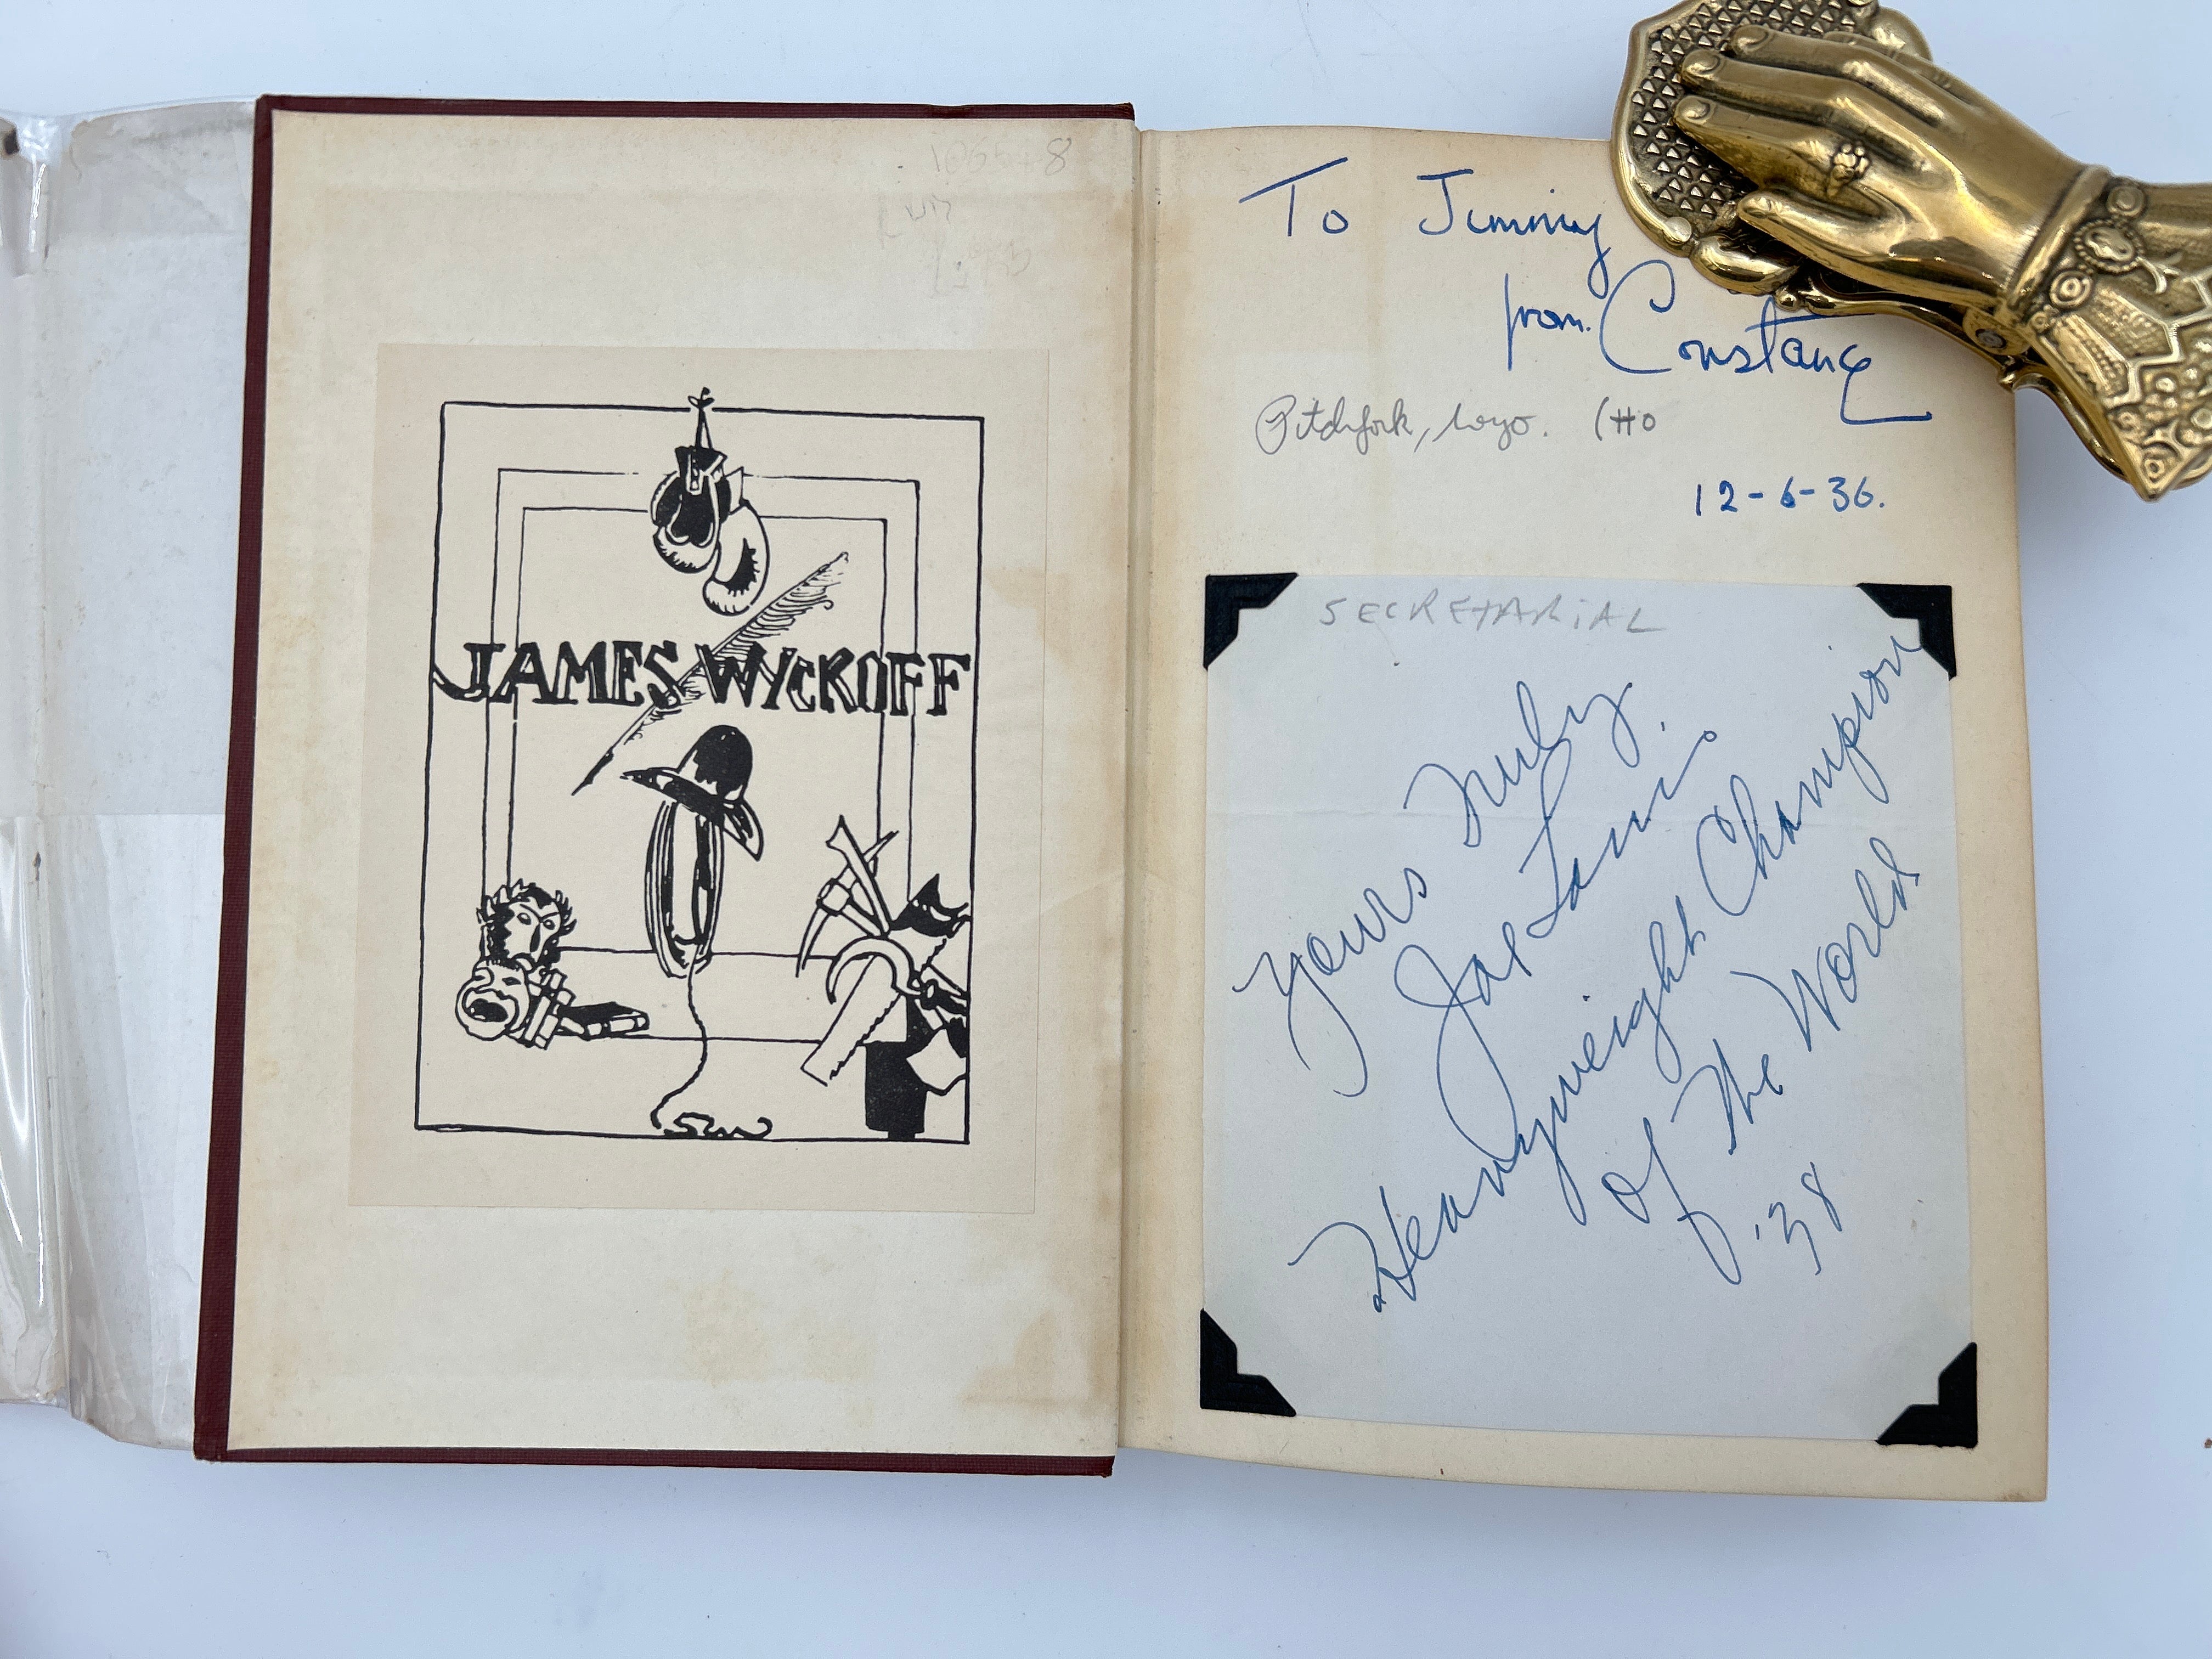 10658
JAMES WYCKOFF
To Jimmy
from Constance
Pitchfork, Wyo. (HO
12-6-36.
SECRETARIAL
Yours Truly.
Joe Louis
Heavyweight Champion
of The World
'38